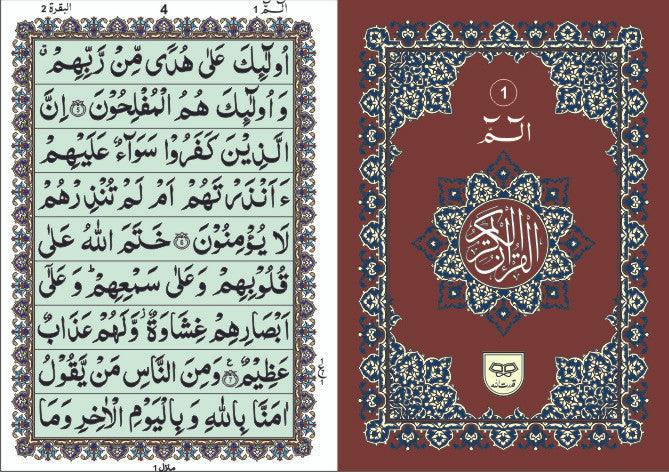 البقرة 2
4
الٓمّٓ 1
اُولٰٓئِكَ عَلٰى هُدًى مِّنْ رَّبِّهِمْ ۗ
وَ اُولٰٓئِكَ هُمُ الْمُفْلِحُوْنَ ۝۵ اِنَّ
الَّذِیْنَ كَفَرُوْا سَوَآءٌ عَلَیْهِمْ
ءَاَنْذَرْتَهُمْ اَمْ لَمْ تُنْذِرْهُمْ
لَا یُؤْمِنُوْنَ ۝۶ خَتَمَ اللّٰهُ عَلٰى
قُلُوْبِهِمْ وَ عَلٰى سَمْعِهِمْ ؕ وَ عَلٰۤى
اَبْصَارِهِمْ غِشَاوَةٌ ؗ وَّ لَهُمْ عَذَابٌ
عَظِیْمٌ ۝۷ وَ مِنَ النَّاسِ مَنْ یَّقُوْلُ
اٰمَنَّا بِاللّٰهِ وَ بِالْیَوْمِ الْاٰخِرِ وَ مَا
منزل 1
1
الٓمّٓ
القرآن الكريم
قدرت الله